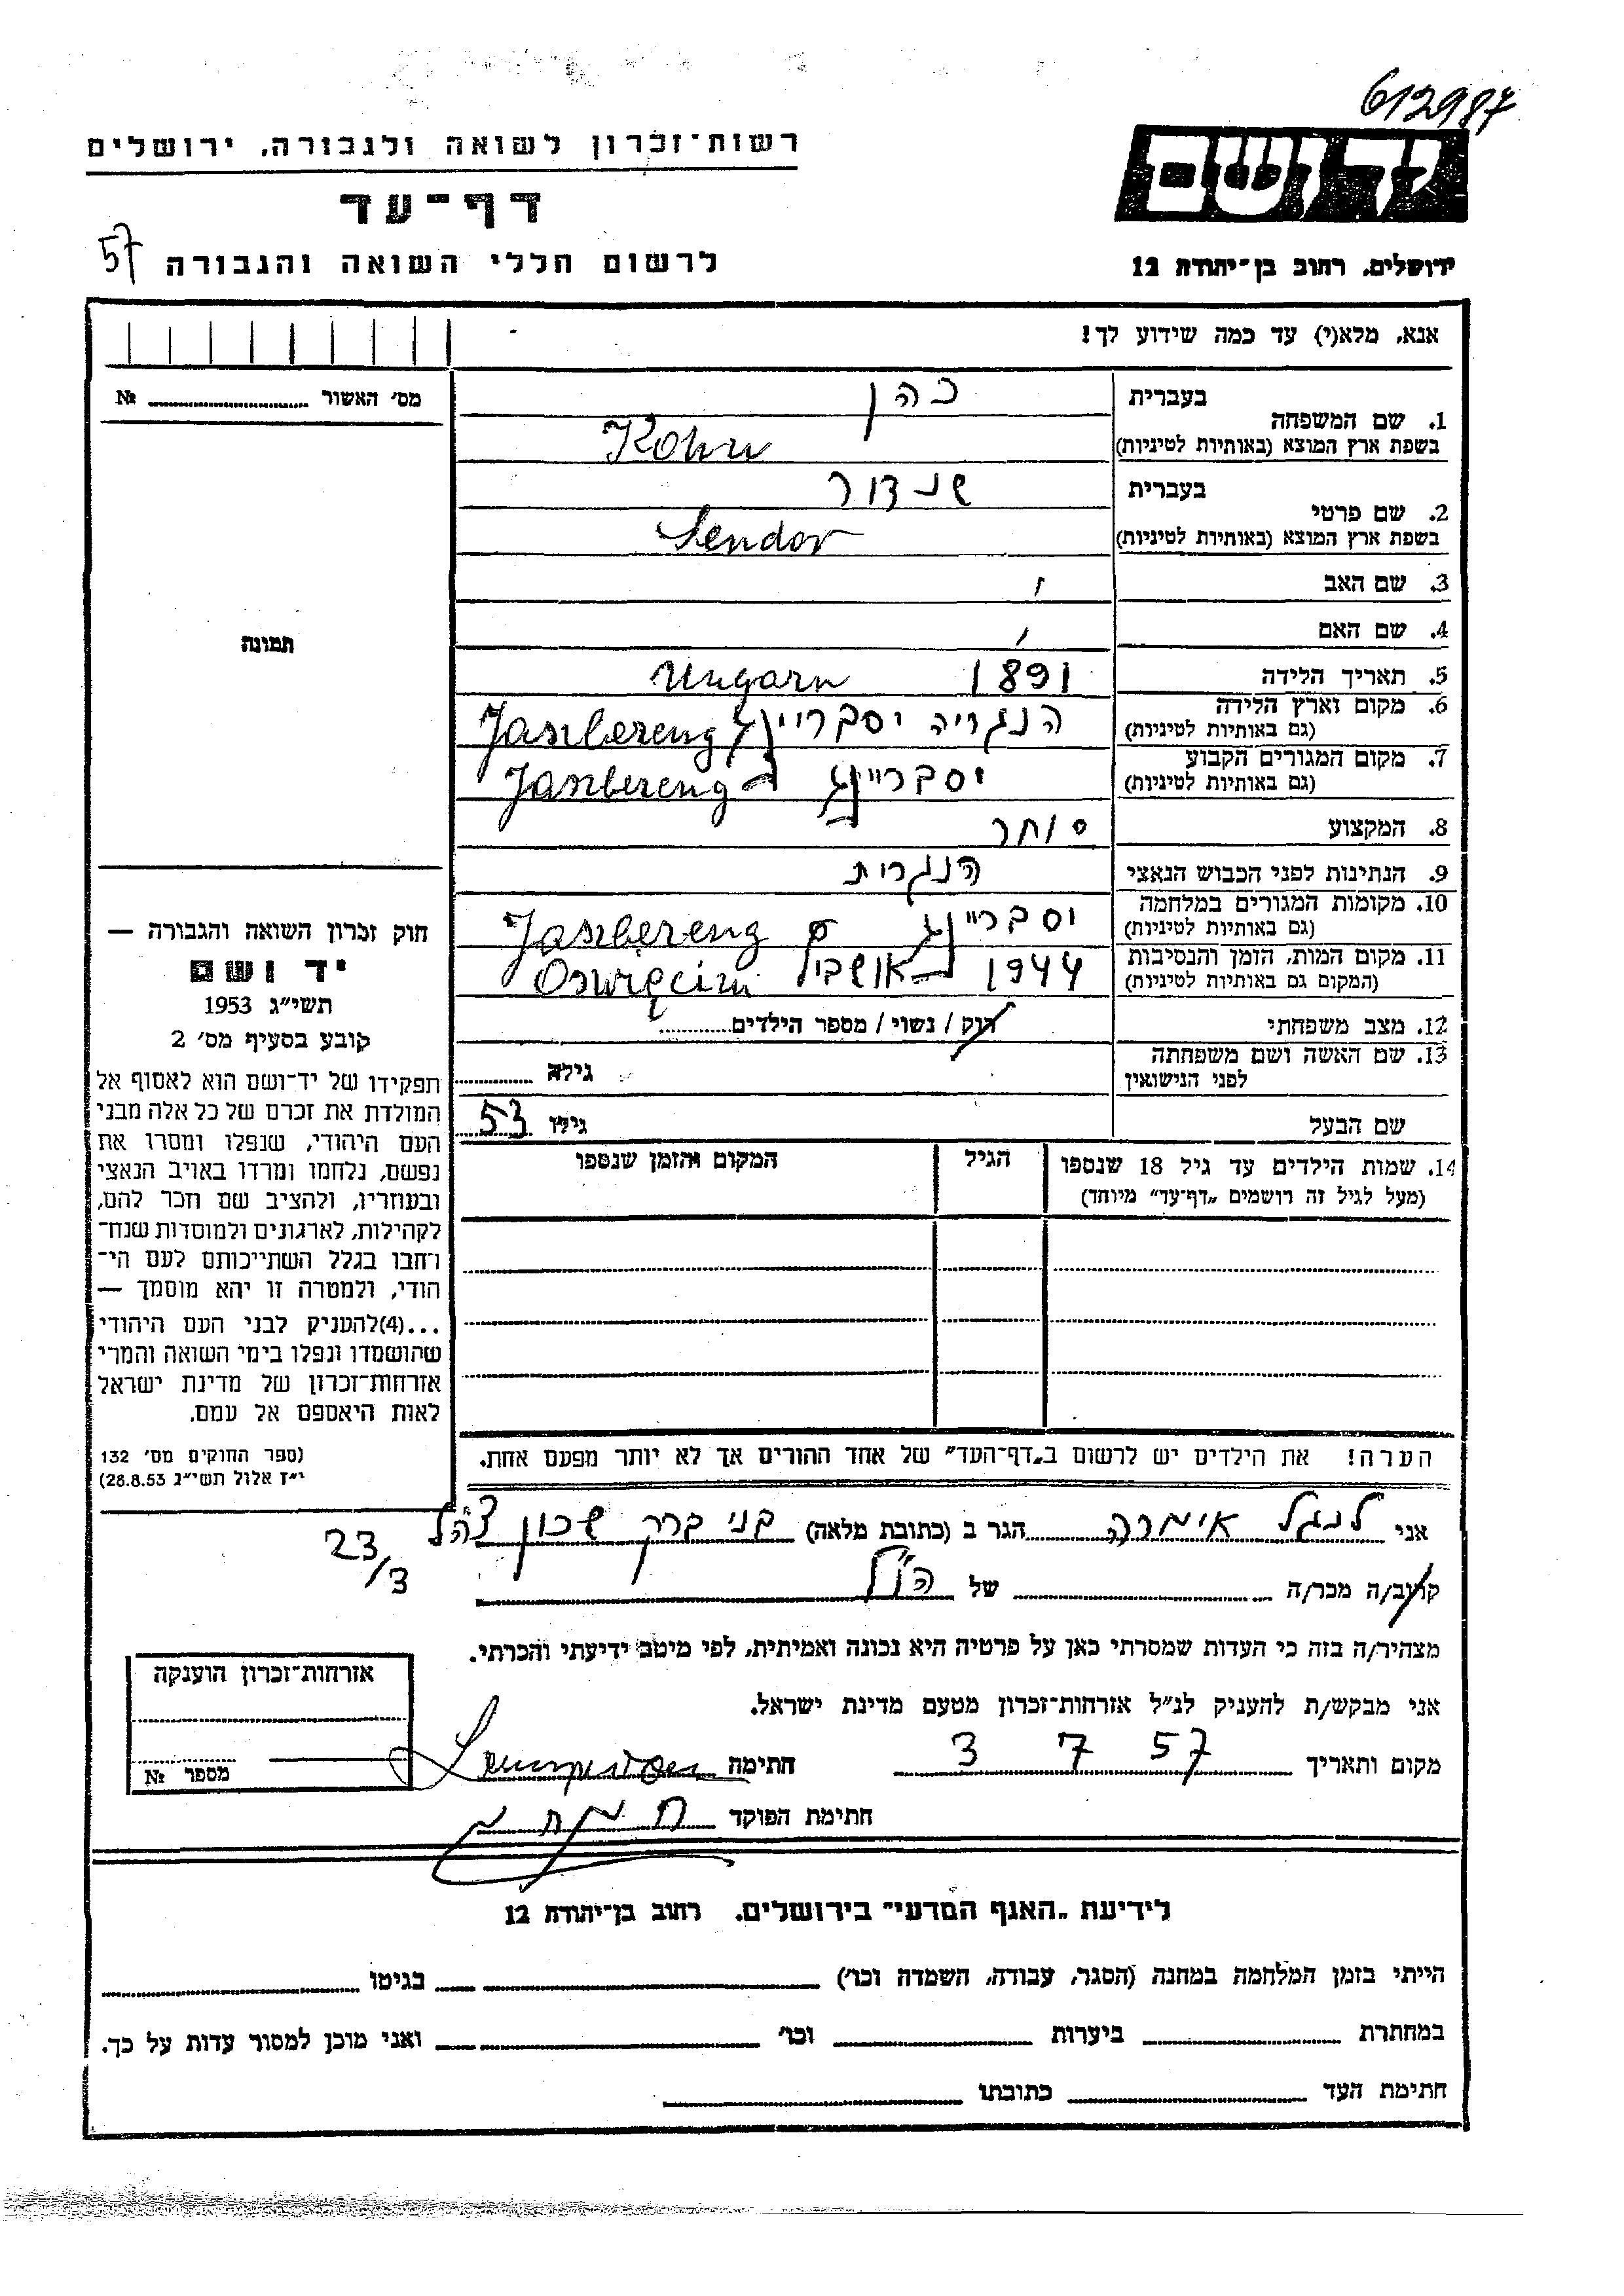 612987
ידושם
רשות־זכרון לשואה ולגבורה, ירושלים
דף־עד
לרשום חללי השואה והגבורה 57
ירושלים, רחוב בן־יהודה 12
אנא, מלא(י) עד כמה שידוע לך!
מס׳ האשור № 
בעברית כהן
1. שם המשפחה
בשפת ארץ המוצא (באותיות לטיניות) Kohn
בעברית שנדור
2. שם פרטי
בשפת ארץ המוצא (באותיות לטיניות) Sendor
3. שם האב
4. שם האם
5. תאריך הלידה 1891 Ungarn
6. מקום וארץ הלידה הנגריה יסבריינג Jaszbereng
(גם באותיות לטיניות)
7. מקום המגורים הקבוע יסבריינג Jaszbereng
(גם באותיות לטיניות)
8. המקצוע סוחר
9. הנתינות לפני הכבוש הנאצי הנגרית
10. מקומות המגורים במלחמה יסבריינג Jaszbereng
(גם באותיות לטיניות)
11. מקום המות, הזמן והנסיבות 1944 Oswięcim
(המקום גם באותיות לטיניות)
12. מצב משפחתי רוק / נשוי / מספר הילדים
13. שם האשה ושם משפחתה
לפני הנישואין גילה
שם הבעל גילו 53
14. שמות הילדים עד גיל 18 שנספו הגיל המקום והזמן שנספו
(מעל לגיל זה רושמים „דף־עד” מיוחד)
הערה! את הילדים יש לרשום ב„דף־העד” של אחד ההורים אך לא יותר מפעם אחת.
תמונה
חוק זכרון השואה והגבורה —
יד ושם
תשי״ג 1953
קובע בסעיף מס׳ 2
תפקידו של יד־ושם הוא לאסוף אל
המולדת את זכרם של כל אלה מבני
העם היהודי, שנפלו ומסרו את
נפשם, נלחמו ומרדו באויב הנאצי
ובעוזריו, ולהציב שם וזכר להם,
לקהילות, לארגונים ולמוסדות שנח־
רחבו בגלל השתייכותם לעם הי־
הודי, ולמטרה זו יהא מוסמך —
...(4)להעניק לבני העם היהודי
שהושמדו ונפלו בימי השואה והמרי
אזרחות־זכרון של מדינת ישראל
לאות היאספם אל עמם.
(ספר החוקים מס׳ 132
י״ז אלול תשי״ג 28.8.53)
אני לנגל אימרה הגר ב (כתובת מלאה) בני ברק שכון צה״ל
23/3
קרוב/ה מכר/ה של הנ״ל
מצהיר/ה בזה כי העדות שמסרתי כאן על פרטיה היא נכונה ואמיתית, לפי מיטב ידיעתי והכרתי.
אני מבקש/ת להעניק לנ״ל אזרחות־זכרון מטעם מדינת ישראל.
מקום ותאריך 3 7 57 חתימה
חתימת הפוקד
אזרחות־זכרון הוענקה
מספר №
לידיעת „האגף המדעי” בירושלים, רחוב בן־יהודה 12
הייתי בזמן המלחמה במחנה (הסגר, עבודה, השמדה וכו׳) בגיטו
במחתרת ביערות וכו׳ ואני מוכן למסור עדות על כך.
חתימת העד כתובתו